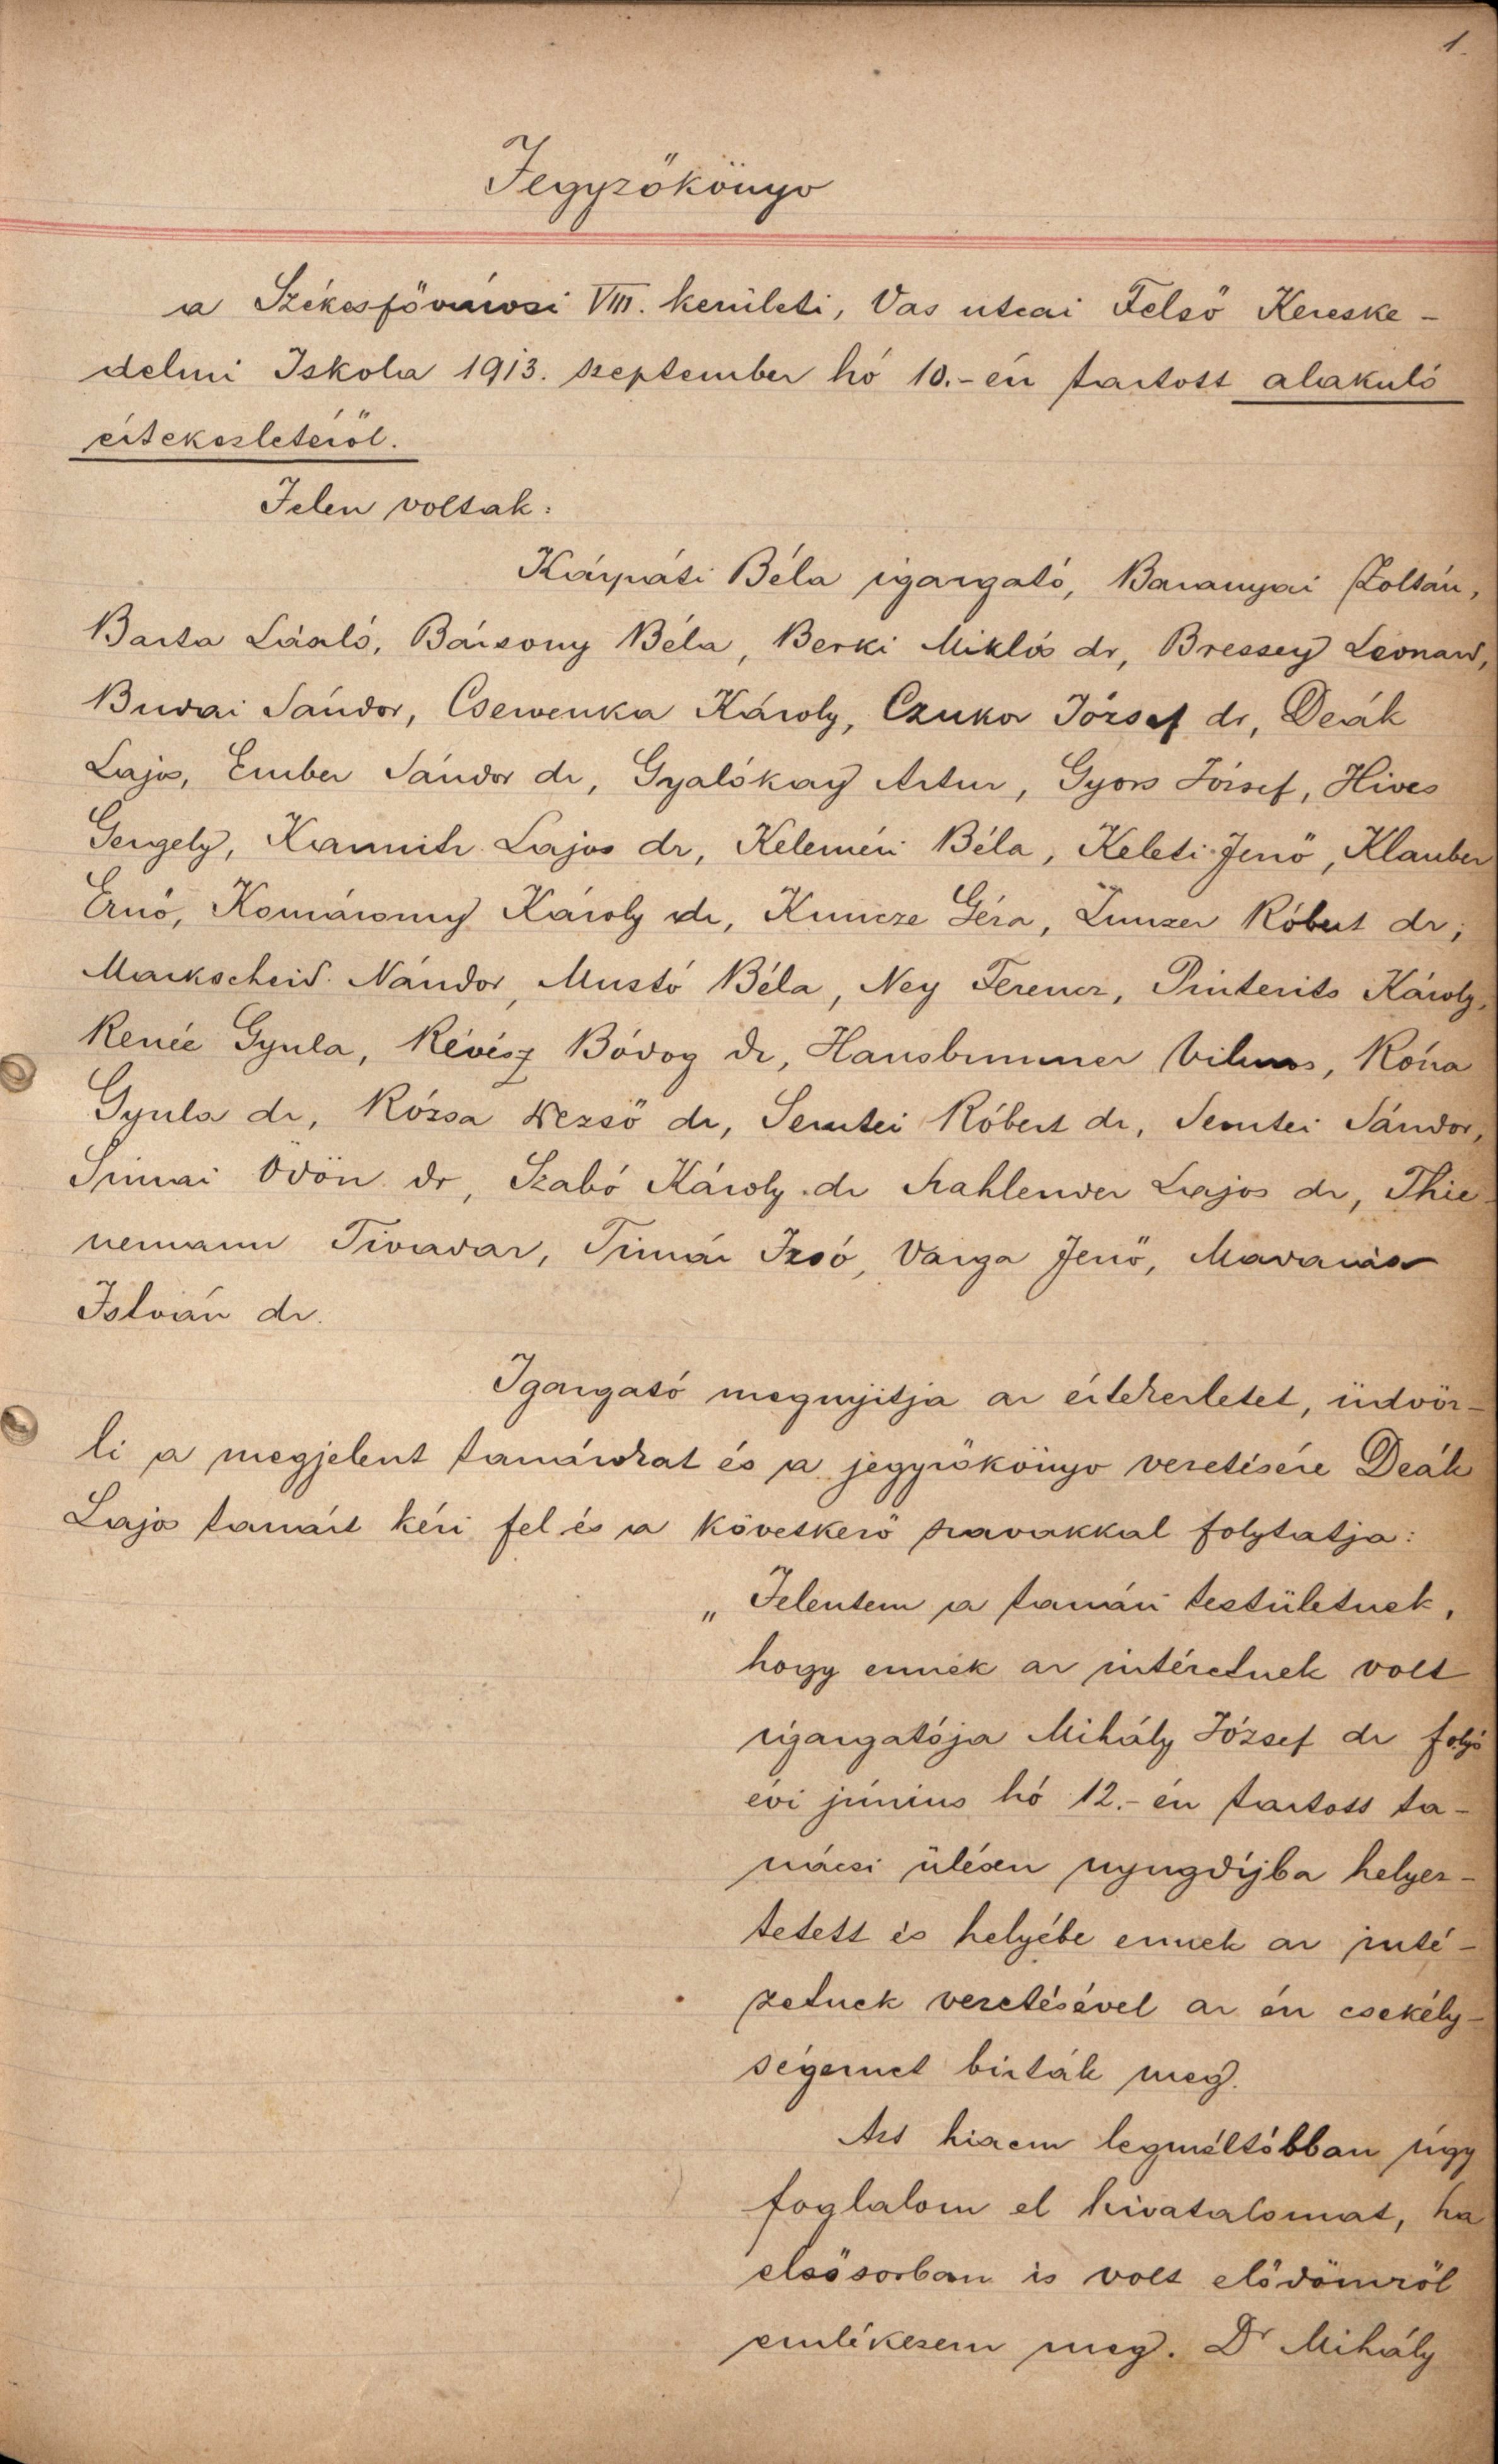 1.
Jegyzőkönyv
a Székesfővárosi VIII. kerületi, Vas utcai Felső Kereske-
delmi Iskola 1913. szeptember hó 10.-én tartott alakuló
értekezletéről.
Jelen voltak:
Kárpáti Béla igazgató, Baranyai Zoltán,
Barta László, Bársony Béla, Berki Miklós dr, Bressey Leonard,
Budai Sándor, Cservenka Károly, Czukor József dr, Deák
Lajos, Ember Sándor dr, Gyalókay Artur, Gyors József, Hives
Gergely, Kamnitz Lajos dr, Keleméri Béla, Keleti Jenő, Klauber
Ernő, Komáromy Károly dr, Kuncze Géza, Lunzer Róbert dr,
Markscheid Nándor, Mustó Béla, Ney Ferencz, Pinterits Károly,
Renée Gyula, Révész Bódog dr, Hausbrunner Vilmos, Róna
Gyula dr, Rózsa Dezső dr, Szentei Róbert dr, Szentei Sándor,
Simai Ödön dr, Szabó Károly dr Lajos dr, Thie-
nemann Tivadar, Timár Izsó, Varga Jenő, Madarász
István dr.
Igazgató megnyitja az értekezletet, üdvöz-
li a megjelent tanárokat és a jegyzőkönyv vezetésére Deák
Lajos tanárt kéri fel és a következő szavakkal folytatja:
„Jelentem a tanári testületnek,
hogy ennek az intézetnek volt
igazgatója Mihály József dr folyó
évi június hó 12.-én tartott ta-
nácsi ülésen nyugdíjba helyez-
tetett és helyébe ennek az inté-
zetnek vezetésével az én csekély-
ségemet bízták meg.
Azt hiszem legméltóbban úgy
foglalom el hivatalomat, ha
elsősorban is volt elődömről
emlékezem meg. Dr Mihály